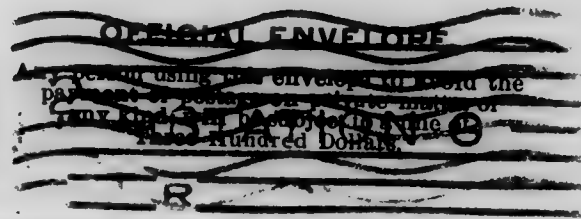 OFFICIAL ENVELOPE
Any person using this envelope to avoid the
payment of postage on private matter of
any kind, will be subject to a fine of
Three Hundred Dollars.
R